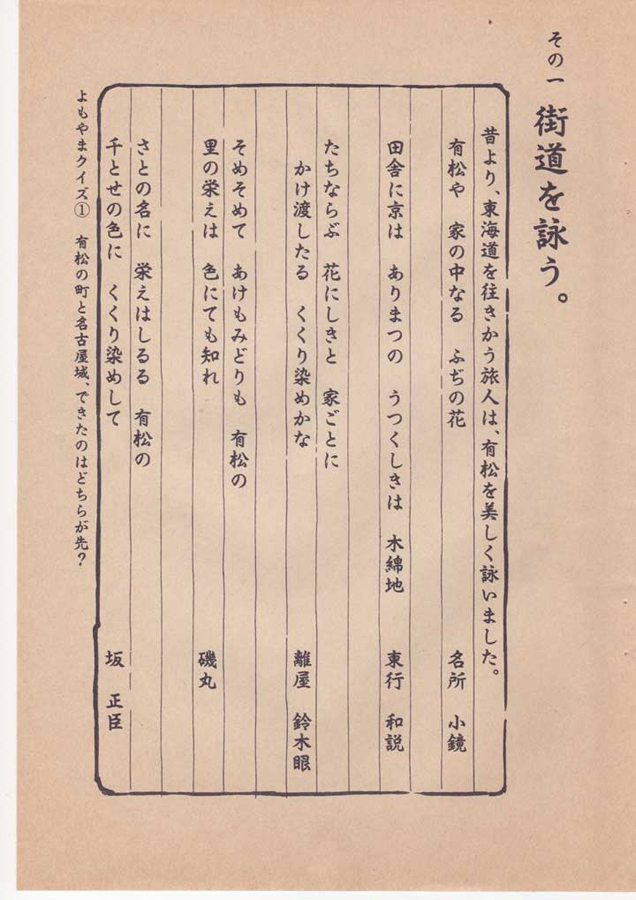 その一 街道を詠う。
昔より、東海道を往きかう旅人は、有松を美しく詠いました。
有松や 家の中なる ふぢの花 名所 小鏡
田舎に京は ありまつの うつくしきは 木綿地 東行 和説
たちならぶ 花にしきと 家ごとに
かけ渡したる くくり染めかな 離屋 鈴木眼
そめそめて あけもみどりも 有松の
里の栄えは 色にても知れ 磯丸
さとの名に 栄えはしるる 有松の
千とせの色に くくり染めして 坂 正臣
よもやまクイズ① 有松の町と名古屋城、できたのはどちらが先?